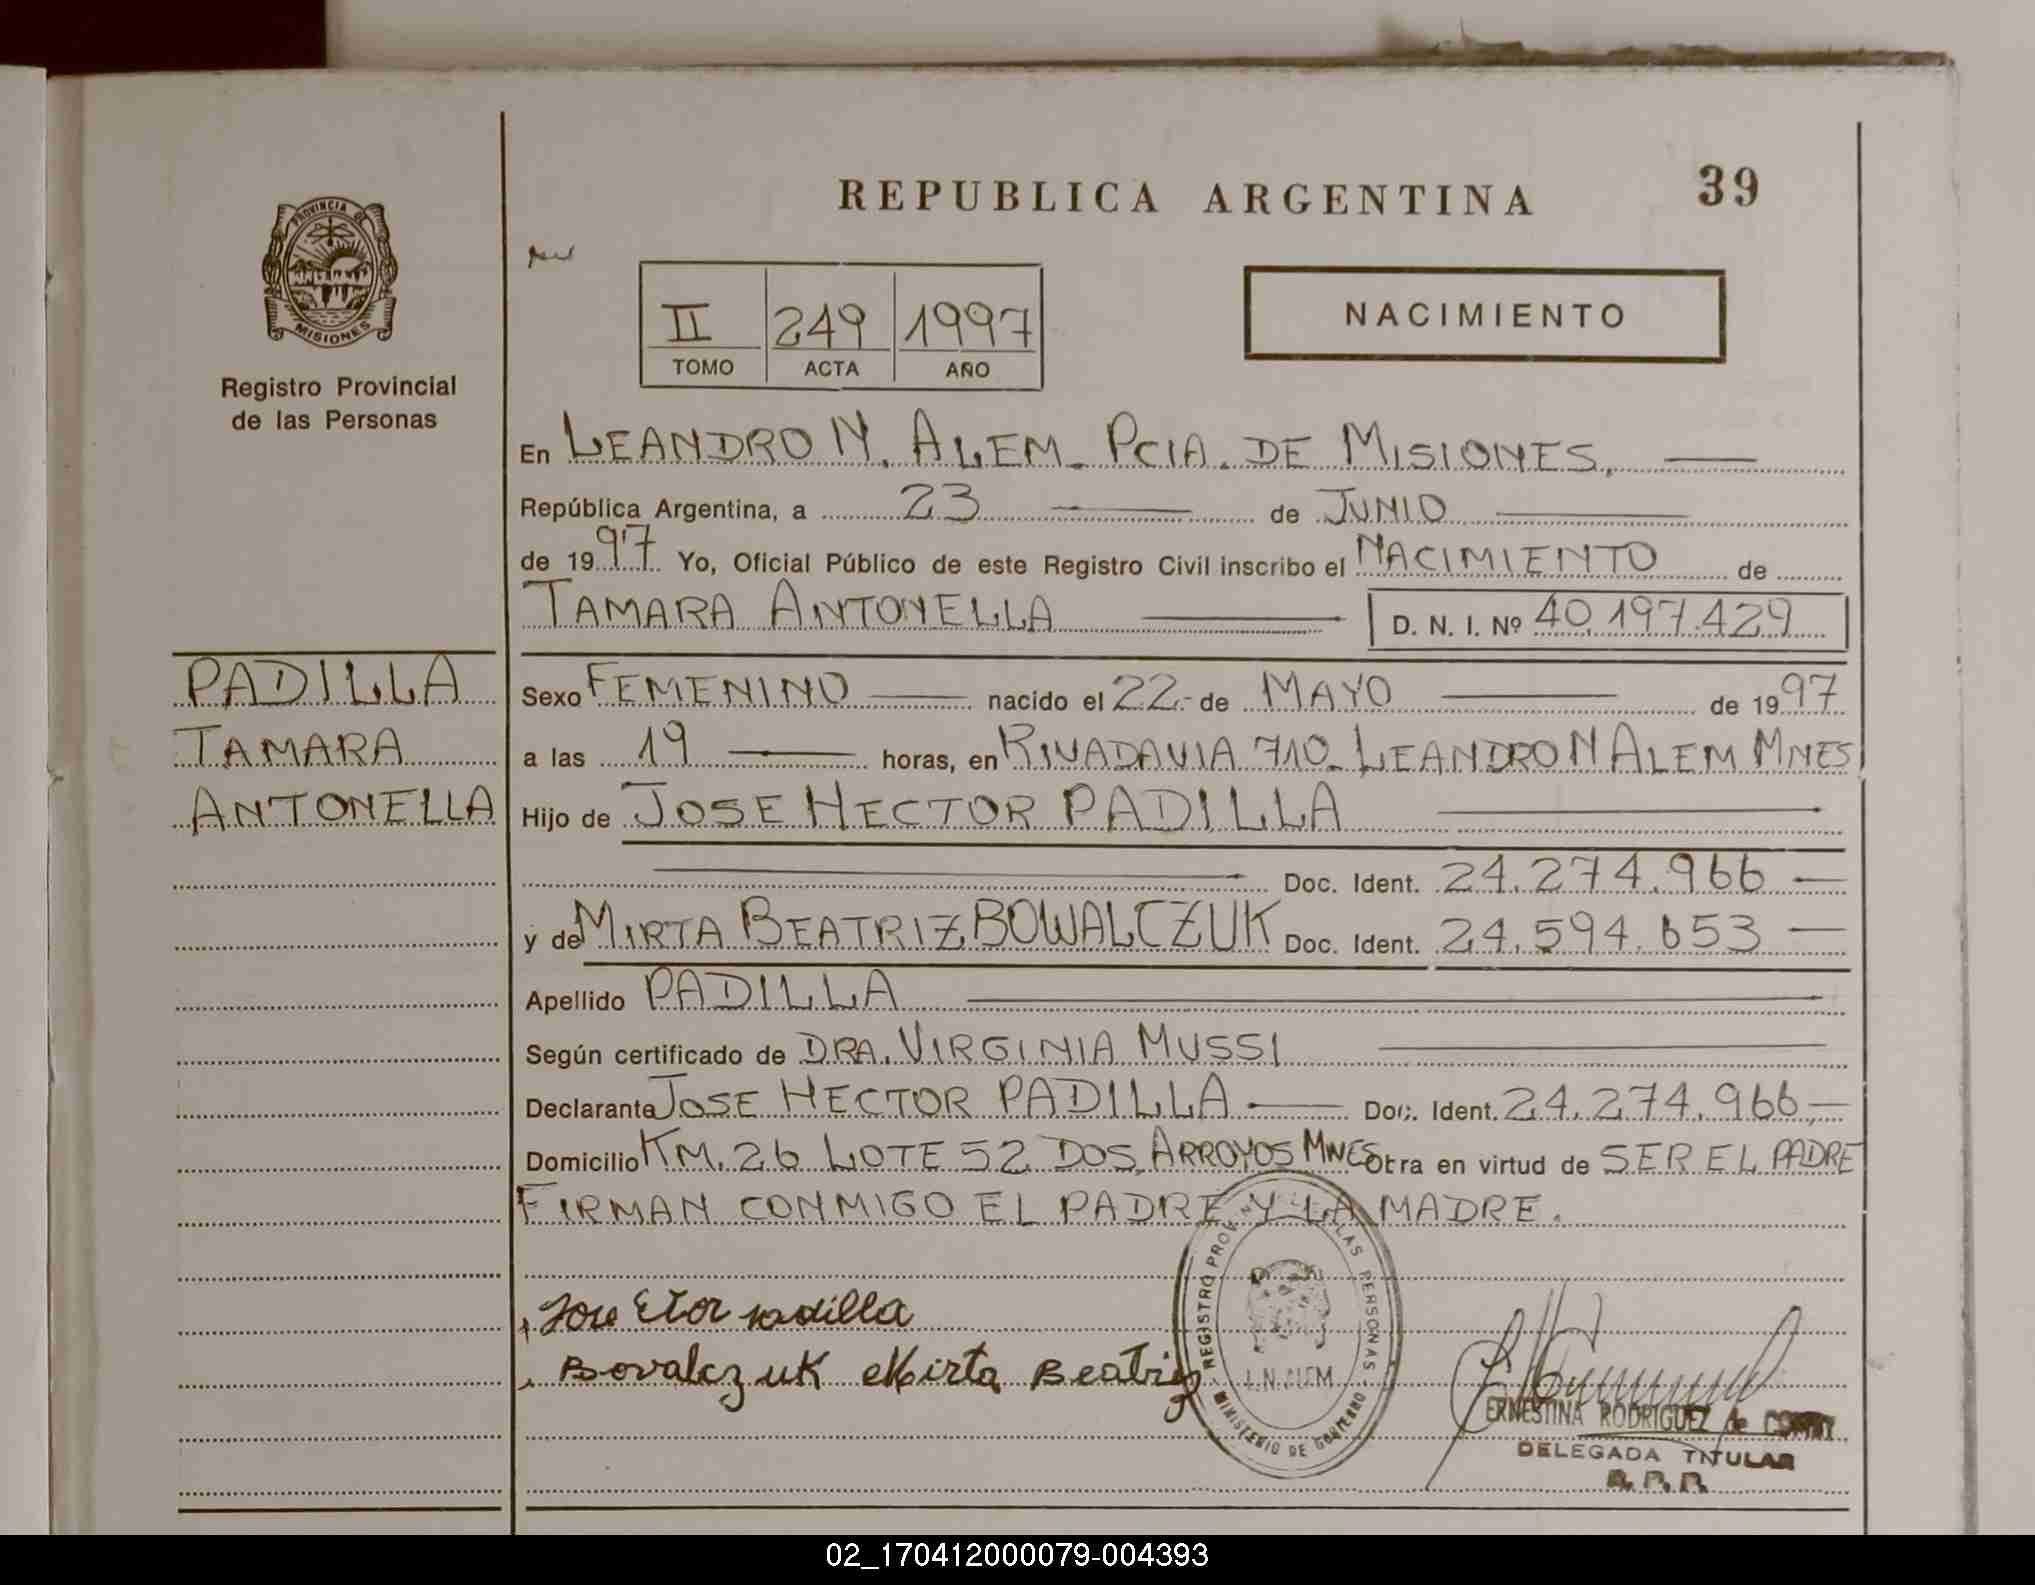 REPUBLICA ARGENTINA
39
PROVINCIA DE
MISIONES
Registro Provincial
de las Personas
II 249 1997
TOMO ACTA AÑO
NACIMIENTO
En LEANDRO N. ALEM. PCIA. DE MISIONES.
República Argentina, a 23 de JUNIO
de 1997 Yo, Oficial Público de este Registro Civil inscribo el NACIMIENTO de
TAMARA ANTONELLA D. N. I. Nº 40.197.429
PADILLA
TAMARA
ANTONELLA
Sexo FEMENINO nacido el 22 de MAYO de 1997
a las 19 horas, en RIVADAVIA 710. LEANDRO N ALEM MNES
Hijo de JOSE HECTOR PADILLA
Doc. Ident. 24.274.966
y de MIRTA BEATRIZ BOWALCZUK Doc. Ident. 24.594.653
Apellido PADILLA
Según certificado de DRA. VIRGINIA MUSSI
Declarante JOSE HECTOR PADILLA Doc. Ident. 24.274.966
Domicilio KM. 26 LOTE 52 DOS ARROYOS MNES Obra en virtud de SER EL PADRE
FIRMAN CONMIGO EL PADRE Y LA MADRE.
Jose Etor padilla
Bovalczuk Mirta Beatriz
REGISTRO PROVINCIAL DE LAS PERSONAS
L.N. ALEM
MINISTERIO DE GOBIERNO
ERNESTINA RODRIGUEZ de
DELEGADA TITULAR
R. P. P.
02_170412000079-004393